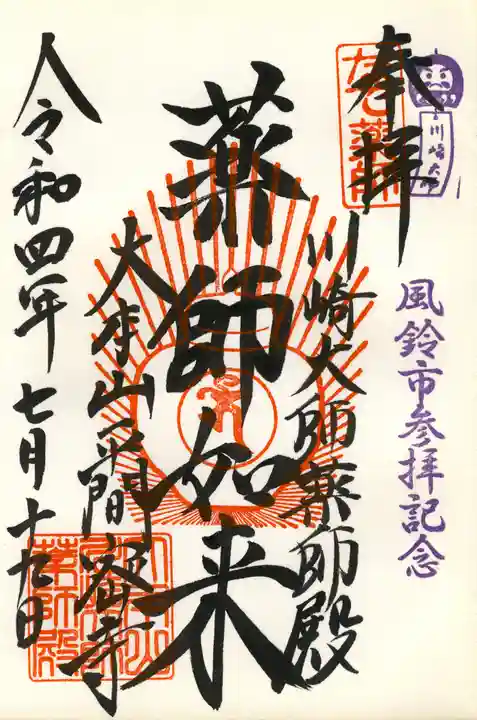 奉拝
川崎大師
風鈴市参拝記念
川崎大師薬師殿
薬師如来
大本山平間密寺
令和四年七月十九日
薬師殿